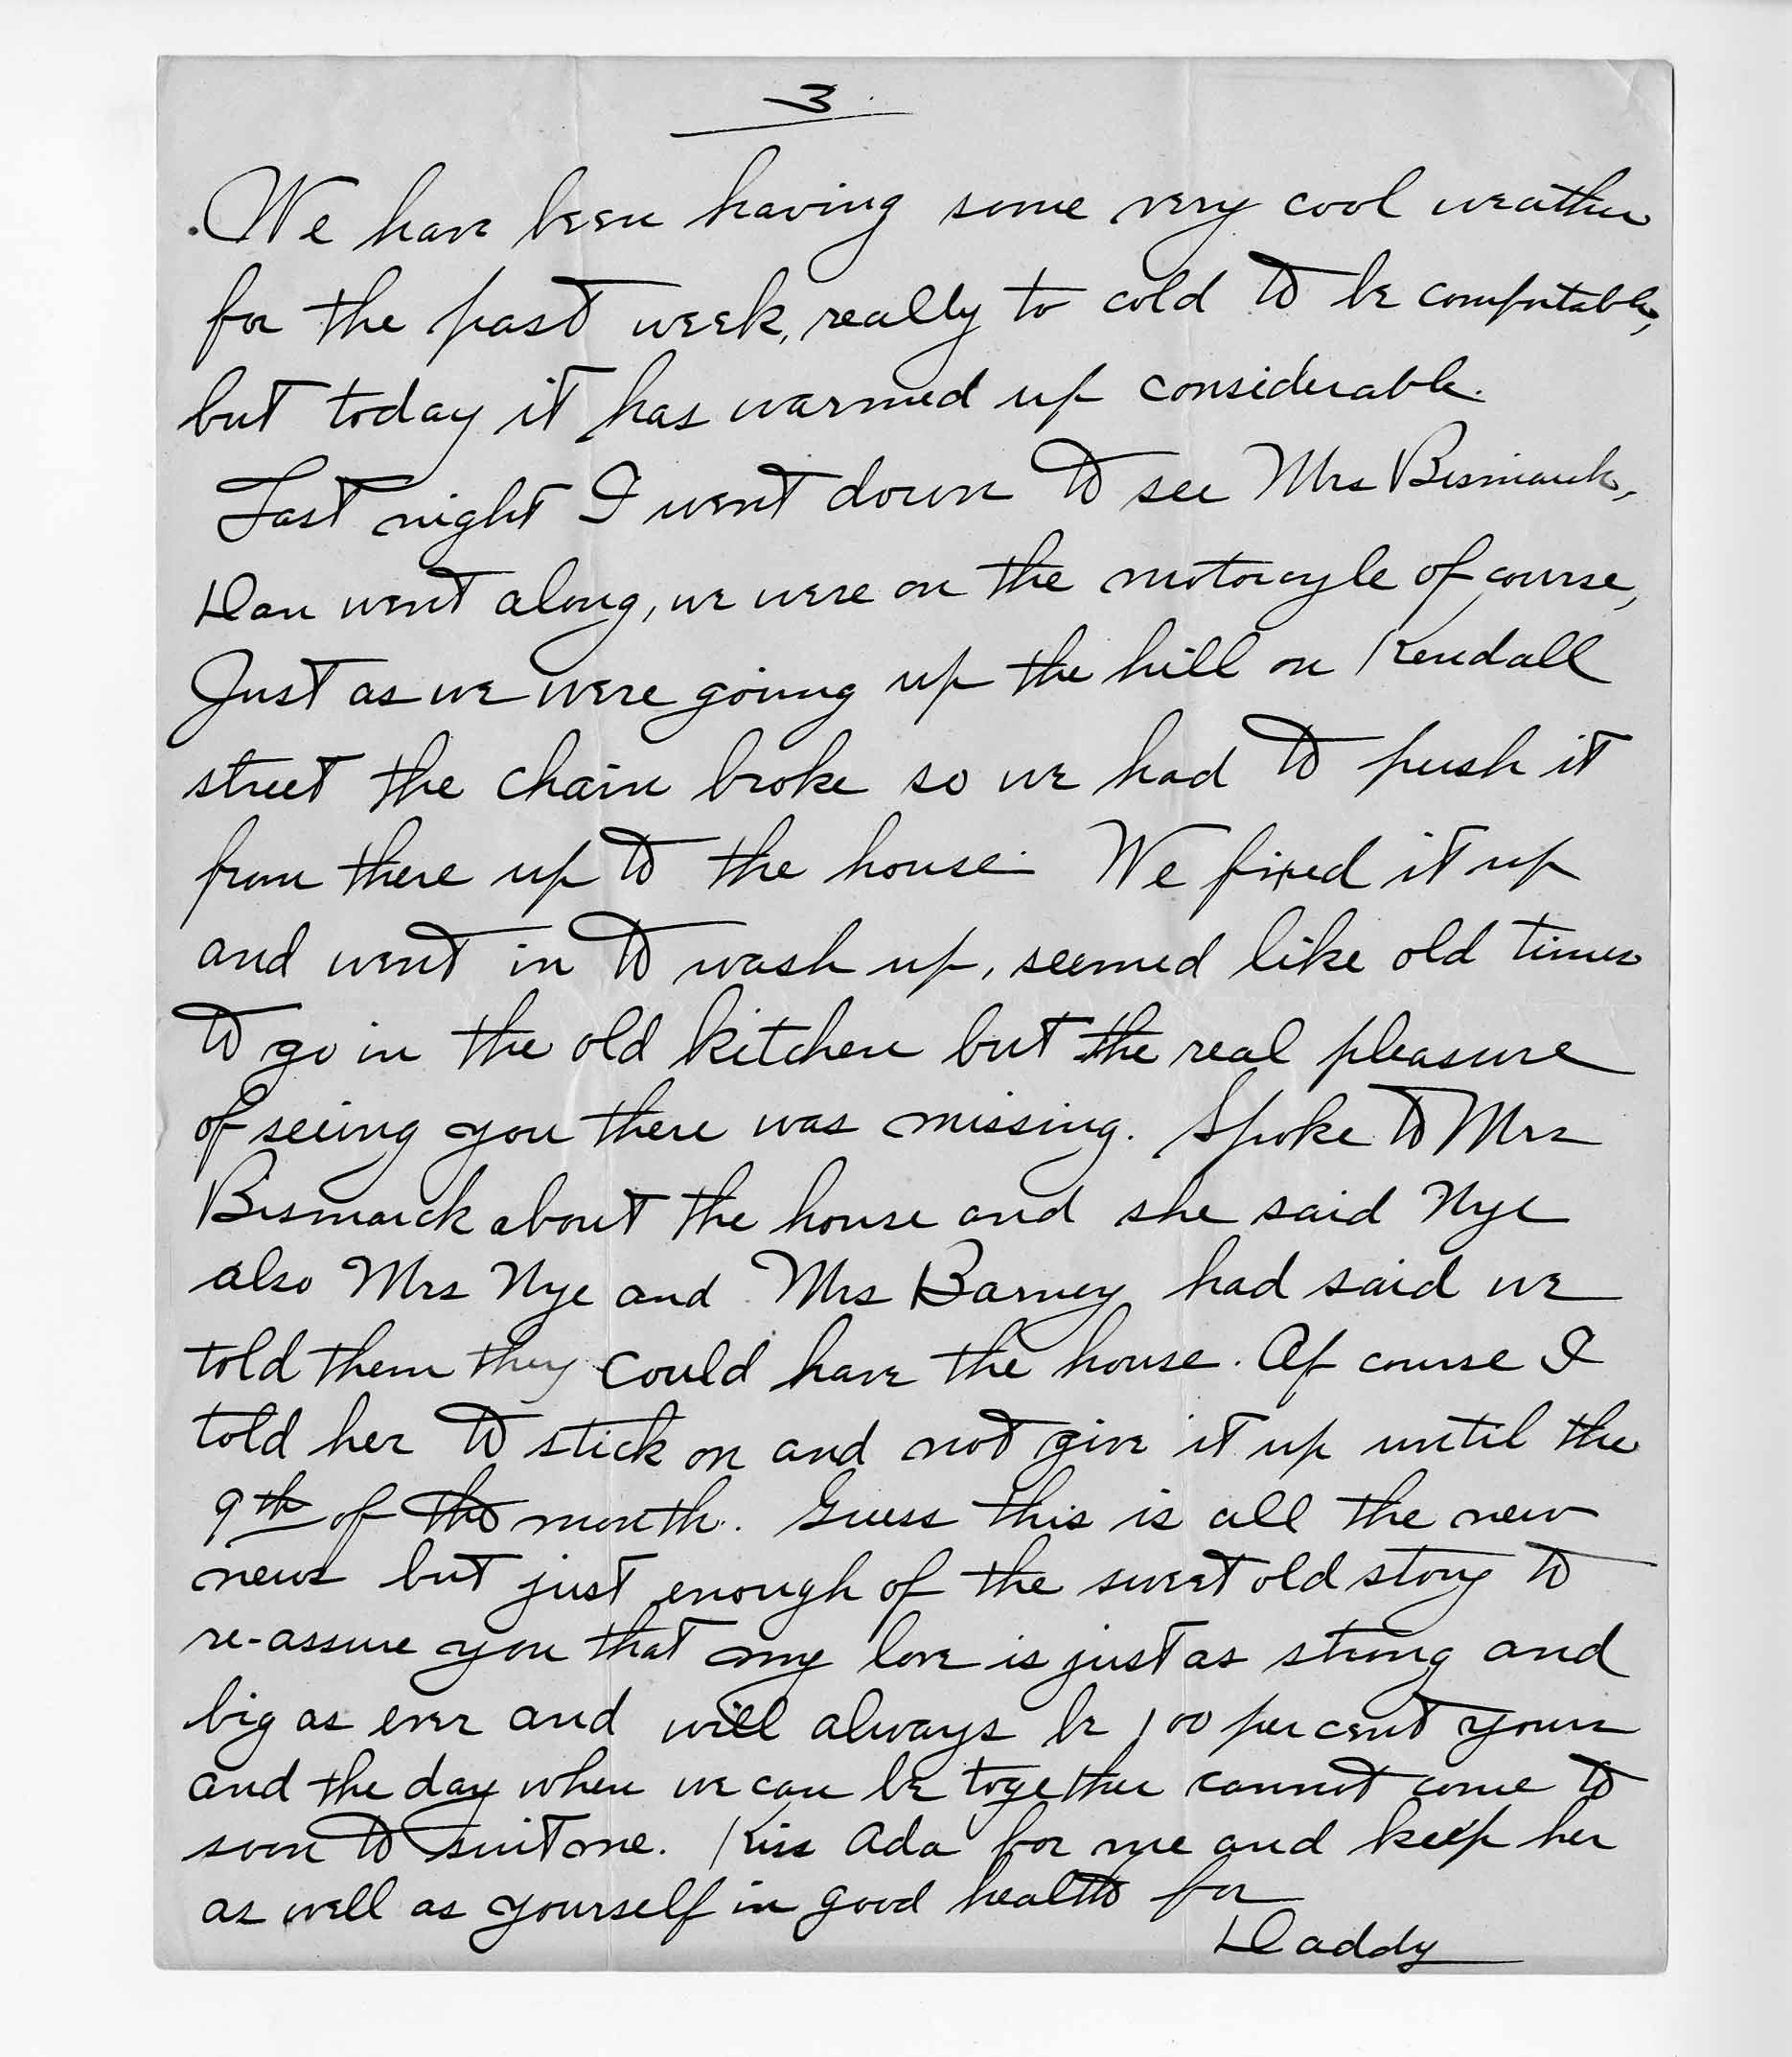 3.
We have been having some very cool weather
for the past week, really to cold to be comfortable,
but today it has warmed up considerable.
Last night I went down to see Mrs Bismarck,
Dan went along, we were on the motorcyle of course,
Just as we were going up the hill on Kendall
street the chain broke so we had to push it
from there up to the house. We fixed it up
and went in to wash up, seemed like old times
to go in the old kitchen but the real pleasure
of seeing you there was missing. Spoke to Mrs
Bismarck about the house and she said Nye
also Mrs Nye and Mrs Barney had said we
told them they could have the house. Of course I
told her to stick on and not give it up until the
9th of the month. Guess this is all the new
news but just enough of the sweet old story to
re-assure you that my love is just as strong and
big as ever and will always be 100 per cent yours
and the day when we can be together cannot come to
soon to suit me. Kiss Ada for me and keep her
as well as yourself in good health for
Daddy